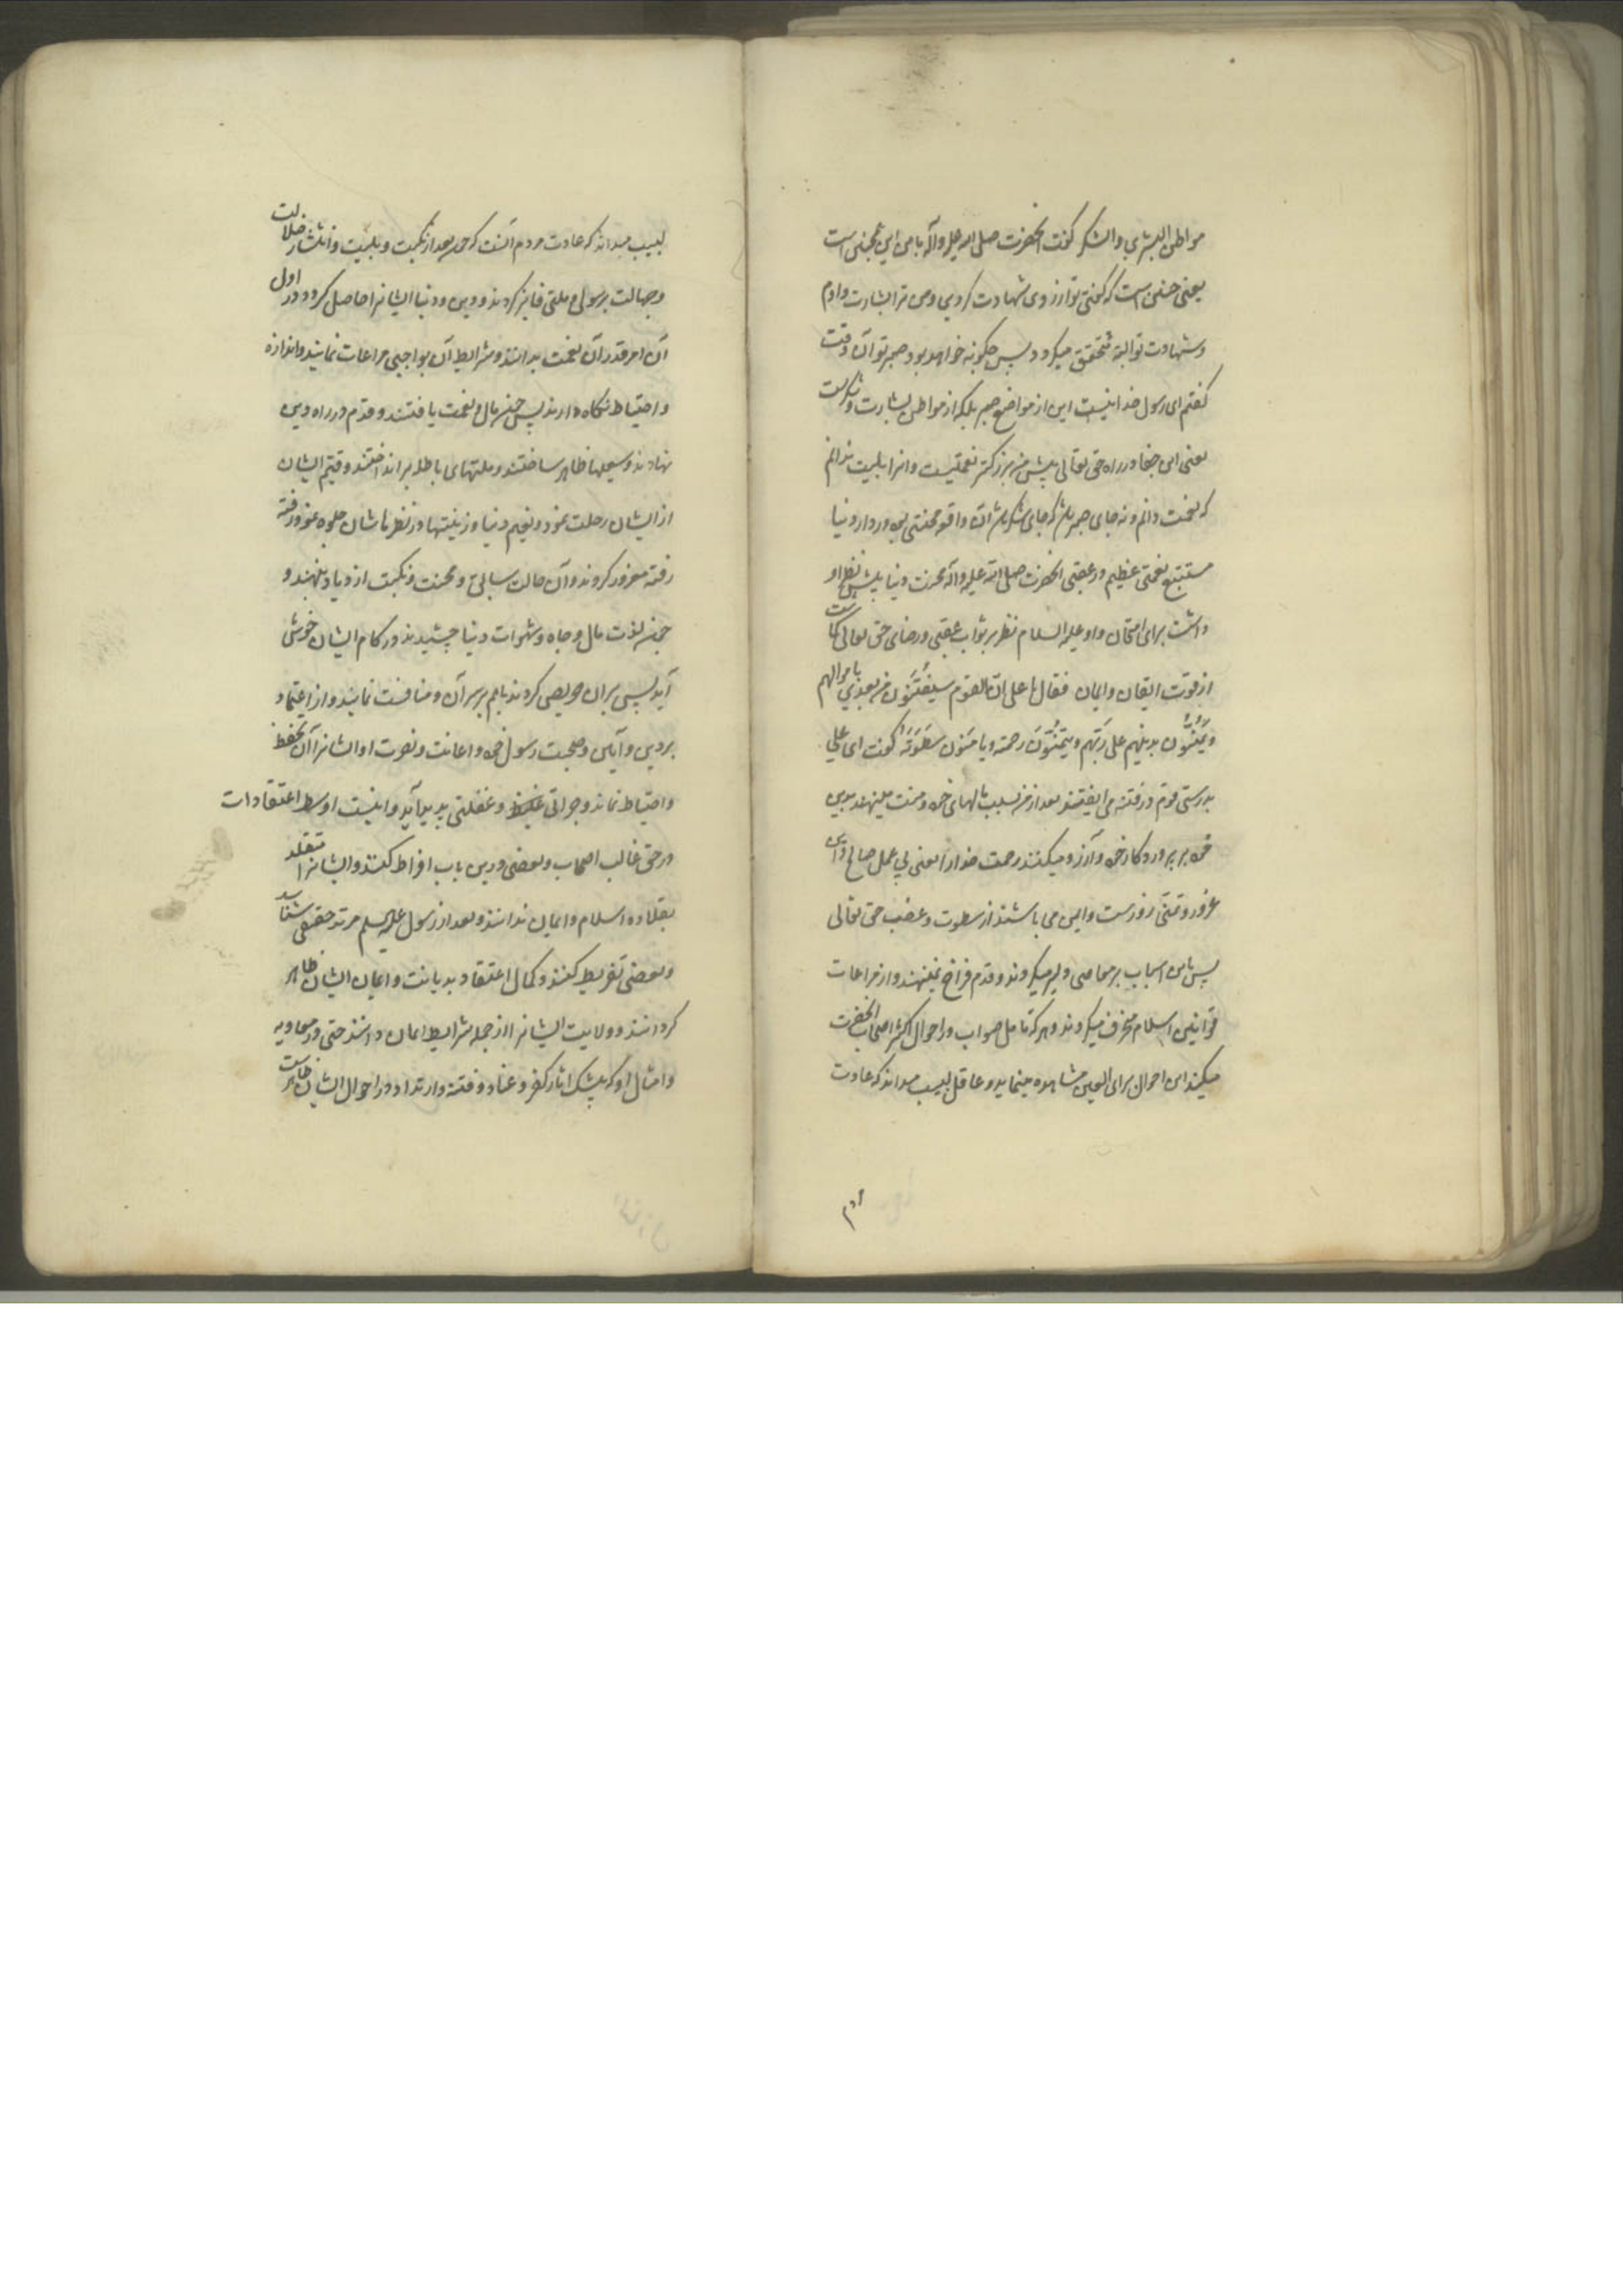 مواطن البشری والشکر گفت آنحضرت صلی الله علیه وآله با من این همچنین است
یعنی حسن است که گفتی تو آرزوی شهادت کردی ومن ترا بشارت دادم
وشهادت تو البته متحقق میگردد پس چگونه خواهد بود صبر تو آن وقت
گفتم ای رسول خدا نیست این از مواضع صبر بلکه از مواطن بشارت وشکرست
یعنی این جفا در راه حق تعالی پیش من بزرگتر نعمتیست وانرا بلیت ندانم
که نعمت دانم ونه جای صبر بلکه جای شکر واقعه محنتی در دار دنیا
مستتبع نعمتی عظیم در عقبی آنحضرت صلی الله علیه وآله محنت دنیا پیش نظر او
داشت برای امتحان واو علیه السلام نظر بر ثواب عقبی ورضای حق تعالی
از قوت ایقان وایمان فقال یا علی ان القوم سیفتنون من بعدی باموالهم
ویمنون بدینهم علی ربهم ویتمنون رحمته ویامنون سطوته گفت ای علی
بدرستی قوم در فتنه می افتند بعد از من بسبب مالهای خود ومنت مینهند بدین
خود بر پروردگار خود وآرزو میکنند رحمت خدا را یعنی بی عمل صالح واین
غرور وتمنی زورست وایمن می باشند از سطوت وغضب حق تعالی
پس باین اسباب بر معاصی دلیر میگردند وقدم فراخ مینهند واز مراعات
قوانین اسلام منحرف میگردند وهر که تامل صواب در احوال اکثر اصحاب آنحضرت
میکند این احوال برای العین مشاهده مینماید وعاقل لبیب میداند که عادت
مردم
لبیب میداند که عادت مردم آنست که چون بعد از نکبت وبلیت وانتشار ضلالت
وجهالت برسول وملتی فایز گردند ودین ودنیا ایشانرا حاصل گردد در اول
آن امر قدر آن نعمت بدانند وشرایط آن بواجبی مراعات نمایند واندازه
واحتیاط نگاه دارند پس چون مال ونعمت یافتند وقدم در راه دین
نهادند وسعیها ظاهر ساختند وملتهای باطله برانداختند وقیم ایشان
از ایشان رحلت نمود ونعیم دنیا وزینتها در نظرهاشان جلوه نمود رفته
رفته مغرور گردند وآن حالت سالف ومحنت ونکبت از یاد بنهند و
چون لذت مال وجاه وشهوات دنیا چشیدند ودر کام ایشان خوش
آید پس بران حریص گردند باهم بر سر آن ومنافست نمایند واز اعتماد
بر دین وآیین وصحبت رسول خود واعانت ونصرت او ایشانرا آن تحفظ
واحتیاط نماند وجراتی وغفلتی پدید آید واینست اوسط اعتقادات
در حق غالب اصحاب وبعضی درین باب افراط کنند وایشانرا متقلد
بقلاده اسلام وایمان ندانند وبعد از رسول علیه السلم مرتد حقیقی شناسد
وبعضی تفریط کنند وکمال اعتقاد بدیانت وایمان ایشان ظاهر
گردانند وولایت ایشانرا از جمله شرایط ایمان دانند حتی در معاویه
وامثال او که بیشک اثار کفر وعناد وفتنه وارتداد در احوال ایشان ظاهرست